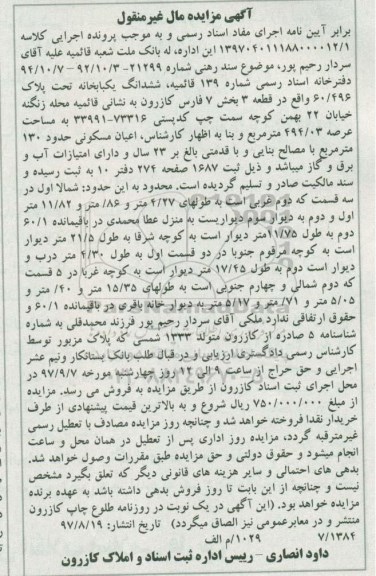 آگهی مزایده مال غیرمنقول
برابر آیین نامه اجرای مفاد اسناد رسمی و به موجب پرونده اجرایی کلاسه
۱۳۹۷۰۴۰۱۱۱۸۸۰۰۰۰۱۲/۱ این اداره، له بانک ملت شعبه قائمیه علیه آقای
سردار رحیم پور، موضوع سند رهنی شماره ۲۱۲۹۹ – ۹۲/۱۰/۳ – ۹۴/۱۰/۷
دفترخانه اسناد رسمی شماره ۱۳۹ قائمیه، ششدانگ یکبابخانه تحت پلاک
۶۰/۴۹۶ واقع در قطعه ۳ بخش ۷ فارس کازرون به نشانی قائمیه محله زنگنه
خیابان ۲۲ بهمن کوچه سمت چپ کدپستی ۷۳۳۱۶-۳۳۹۹۱ به مساحت
عرصه ۴۹۴/۰۳ مترمربع و بنا به اظهار کارشناس، اعیان مسکونی حدود ۱۳۰
مترمربع با مصالح بنایی و با قدمتی بالغ بر ۲۳ سال و دارای امتیازات آب و
برق و گاز میباشد و ذیل ثبت ۱۶۸۷ صفحه ۲۷۴ دفتر ۱۰ به ثبت رسیده و
سند مالکیت صادر و تسلیم گردیده است. محدود به این حدود: شمالا اول در
سه قسمت که دوم غربی است به طولهای ۴/۲۷ متر و ۸۶/ متر و ۱۱/۸۲ متر
اول و دوم به دیوار سوم دیواریست به منزل عطا محمدی در باقیمانده ۶۰/۱
دوم به طول ۱۱/۷۵متر دیوار است به کوچه شرقا به طول ۲۱/۵ متر دیوار
است به کوچه مرقوم جنوبا در دو قسمت اول به طول ۴/۳۰ متر درب و
دیوار است دوم به طول ۱۷/۴۵ متر دیوار است به کوچه غربا در ۵ قسمت
که دوم شمالی و چهارم جنوبی است به طولهای ۱۵/۳۵ متر و ۴۰/ متر و
۵/۰۵ متر و ۷۱/ متر و ۵/۱۷ متر به دیوار خانه باقری در باقیمانده ۶۰/۱ و
حقوق ارتفاقی ندارد ملکی آقای سردار رحیم پور فرزند محمدقلی به شماره
شناسنامه ۵ صادره از کازرون متولد ۱۳۳۳ شمسی که پلاک مزبور توسط
کارشناس رسمی دادگستری ارزیابی و در قبال طلب بانک بستانکار ونیم عشر
اجرایی و حق حراج از ساعت ۹ الی ۱۲ روز چهارشنبه مورخه ۹۷/۹/۷ در
محل اجرای ثبت اسناد کازرون از طریق مزایده به فروش می رسد. مزایده
از مبلغ ۷۵۰/۰۰۰/۰۰۰ ریال شروع و به بالاترین قیمت پیشنهادی از طرف
خریدار نقدا فروخته خواهد شد و چنانچه روز مزایده مصادف با تعطیل رسمی
غیرمترقبه گردد، مزایده روز اداری پس از تعطیل در همان محل و ساعت
انجام میشود و حقوق دولتی و حق مزایده طبق مقررات وصول خواهد شد.
بدهی های احتمالی و سایر هزینه های قانونی دیگر که تعلق بگیرد مشخص
نیست و چنانچه از این بابت تا روز فروش بدهی داشته باشد به عهده برنده
مزایده خواهد بود. (این آگهی در یک نوبت در روزنامه طلوع چاپ کازرون
منتشر و در معابرعمومی نیز الصاق میگردد) تاریخ انتشار: ۹۷/۸/۱۹
۷/۱۳۸۴ ۱۰۲۹/م الف
داود انصاری – رییس اداره ثبت اسناد و املاک کازرون